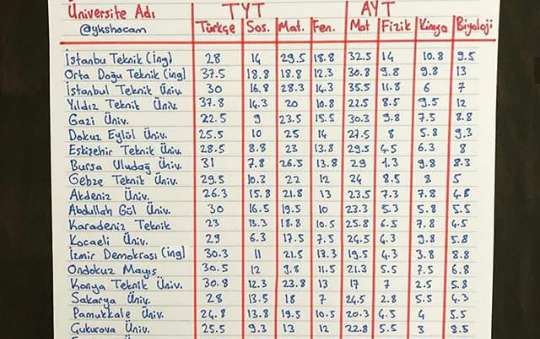 Üniversite Adı TYT AYT
@ykshocam Türkçe Sos. Mat. Fen. Mat Fizik Kimya Biyoloji
İstanbu Teknik (ing) 28 14 29.5 18.8 32.5 14 10.8 9.5
Orta Doğu Teknik (ing) 37.5 18.8 18.8 12.3 30.8 9.8 9.8 13
İstanbul Teknik Üniv. 30 16.8 28.3 14.3 35.5 11.8 6 7
Yıldız Teknik Üniv. 37.8 14.3 20 10.8 22.5 8.5 9.5 12
Gazi Üniv. 22.5 9 23.5 15.5 30.3 9.8 7.5 8.8
Dokuz Eylül Üniv. 25.5 10 25 14 27.5 8 5.8 9.3
Eskişehir Teknik Üniv. 28.5 8.8 23 13.8 29.5 4.5 6.3 8
Bursa Uludağ Üniv. 31 7.8 26.5 13.8 29 1.3 9.8 8.3
Gebze Teknik Üniv. 29.5 10.3 22 12 24 8.5 8 5
Akdeniz Üniv. 26.3 15.8 21.8 13 23.5 7.3 7.8 4.8
Abdullah Gül Üniv. 30 16.5 19.5 10 23.3 5.3 5.8 5.5
Karadeniz Teknik 23 13.3 18.8 10.8 25.8 6.5 7.8 4.5
Kocaeli Üniv. 29 6.3 17.5 7.5 24.5 4.3 9.8 5.8
İzmir Demokrasi (ing) 30.3 11 21.5 13.3 19.5 4.3 3.8 8.8
Ondokuz Mayıs 30.5 12 9.8 11.5 21.3 5.5 7.5 6.8
Konya Teknik Üniv. 30.8 12.3 23.8 13 17 7 2.5 5.8
Sakarya Üniv. 28 13.5 18 7 24.5 2.8 5.5 4.3
Pamukkale Üniv. 24.8 13.8 19.5 10.5 20.3 4.5 4 5.5
Çukurova Üniv. 25.5 9.3 13 12 22.8 5.5 3 8.5